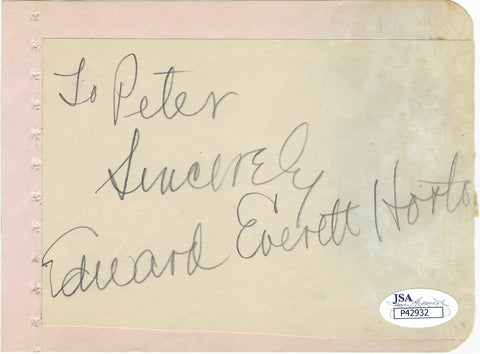 To Peter
Sincerely
Edward Everett Horto
JSA
P42932